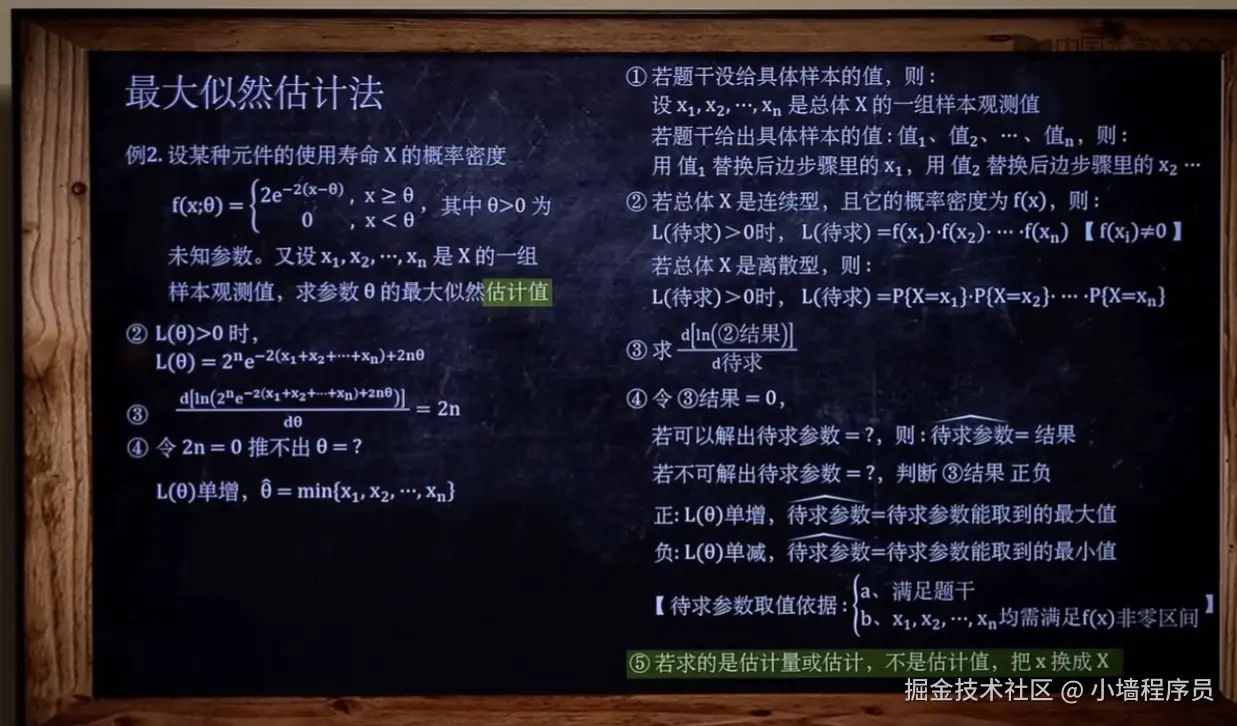 最大似然估计法
例2. 设某种元件的使用寿命 X 的概率密度
f(x;θ) = {2e^{-2(x-θ)} , x ≥ θ
0 , x < θ , 其中 θ>0 为
未知参数。又设 x₁, x₂, ⋯, xₙ 是 X 的一组
样本观测值，求参数 θ 的最大似然估计值
② L(θ)>0 时，
L(θ) = 2ⁿe^{-2(x₁+x₂+⋯+xₙ)+2nθ}
③ d[ln(2ⁿe^{-2(x₁+x₂+⋯+xₙ)+2nθ})]/dθ = 2n
④ 令 2n = 0 推不出 θ = ?
L(θ)单增，θ̂ = min{x₁, x₂, ⋯, xₙ}
① 若题干没给具体样本的值，则：
设 x₁, x₂, ⋯, xₙ 是总体 X 的一组样本观测值
若题干给出具体样本的值：值₁、值₂、⋯、值ₙ，则：
用 值₁ 替换后边步骤里的 x₁，用 值₂ 替换后边步骤里的 x₂ ⋯
② 若总体 X 是连续型，且它的概率密度为 f(x)，则：
L(待求)＞0时， L(待求) =f(x₁)·f(x₂)· ⋯ ·f(xₙ) 【 f(xᵢ)≠0 】
若总体 X 是离散型，则：
L(待求)＞0时， L(待求) =P{X=x₁}·P{X=x₂}· ⋯ ·P{X=xₙ}
③ 求 d[ln(②结果)]/d待求
④ 令 ③结果 = 0，
若可以解出待求参数 = ?，则：待求参数= 结果
若不可解出待求参数 = ?，判断 ③结果 正负
正: L(θ)单增，待求参数=待求参数能取到的最大值
负: L(θ)单减，待求参数=待求参数能取到的最小值
【 待求参数取值依据: {a、满足题干
b、x₁, x₂, ⋯, xₙ均需满足f(x)非零区间 】
⑤ 若求的是估计量或估计，不是估计值，把 x 换成 X
掘金技术社区 @ 小墙程序员